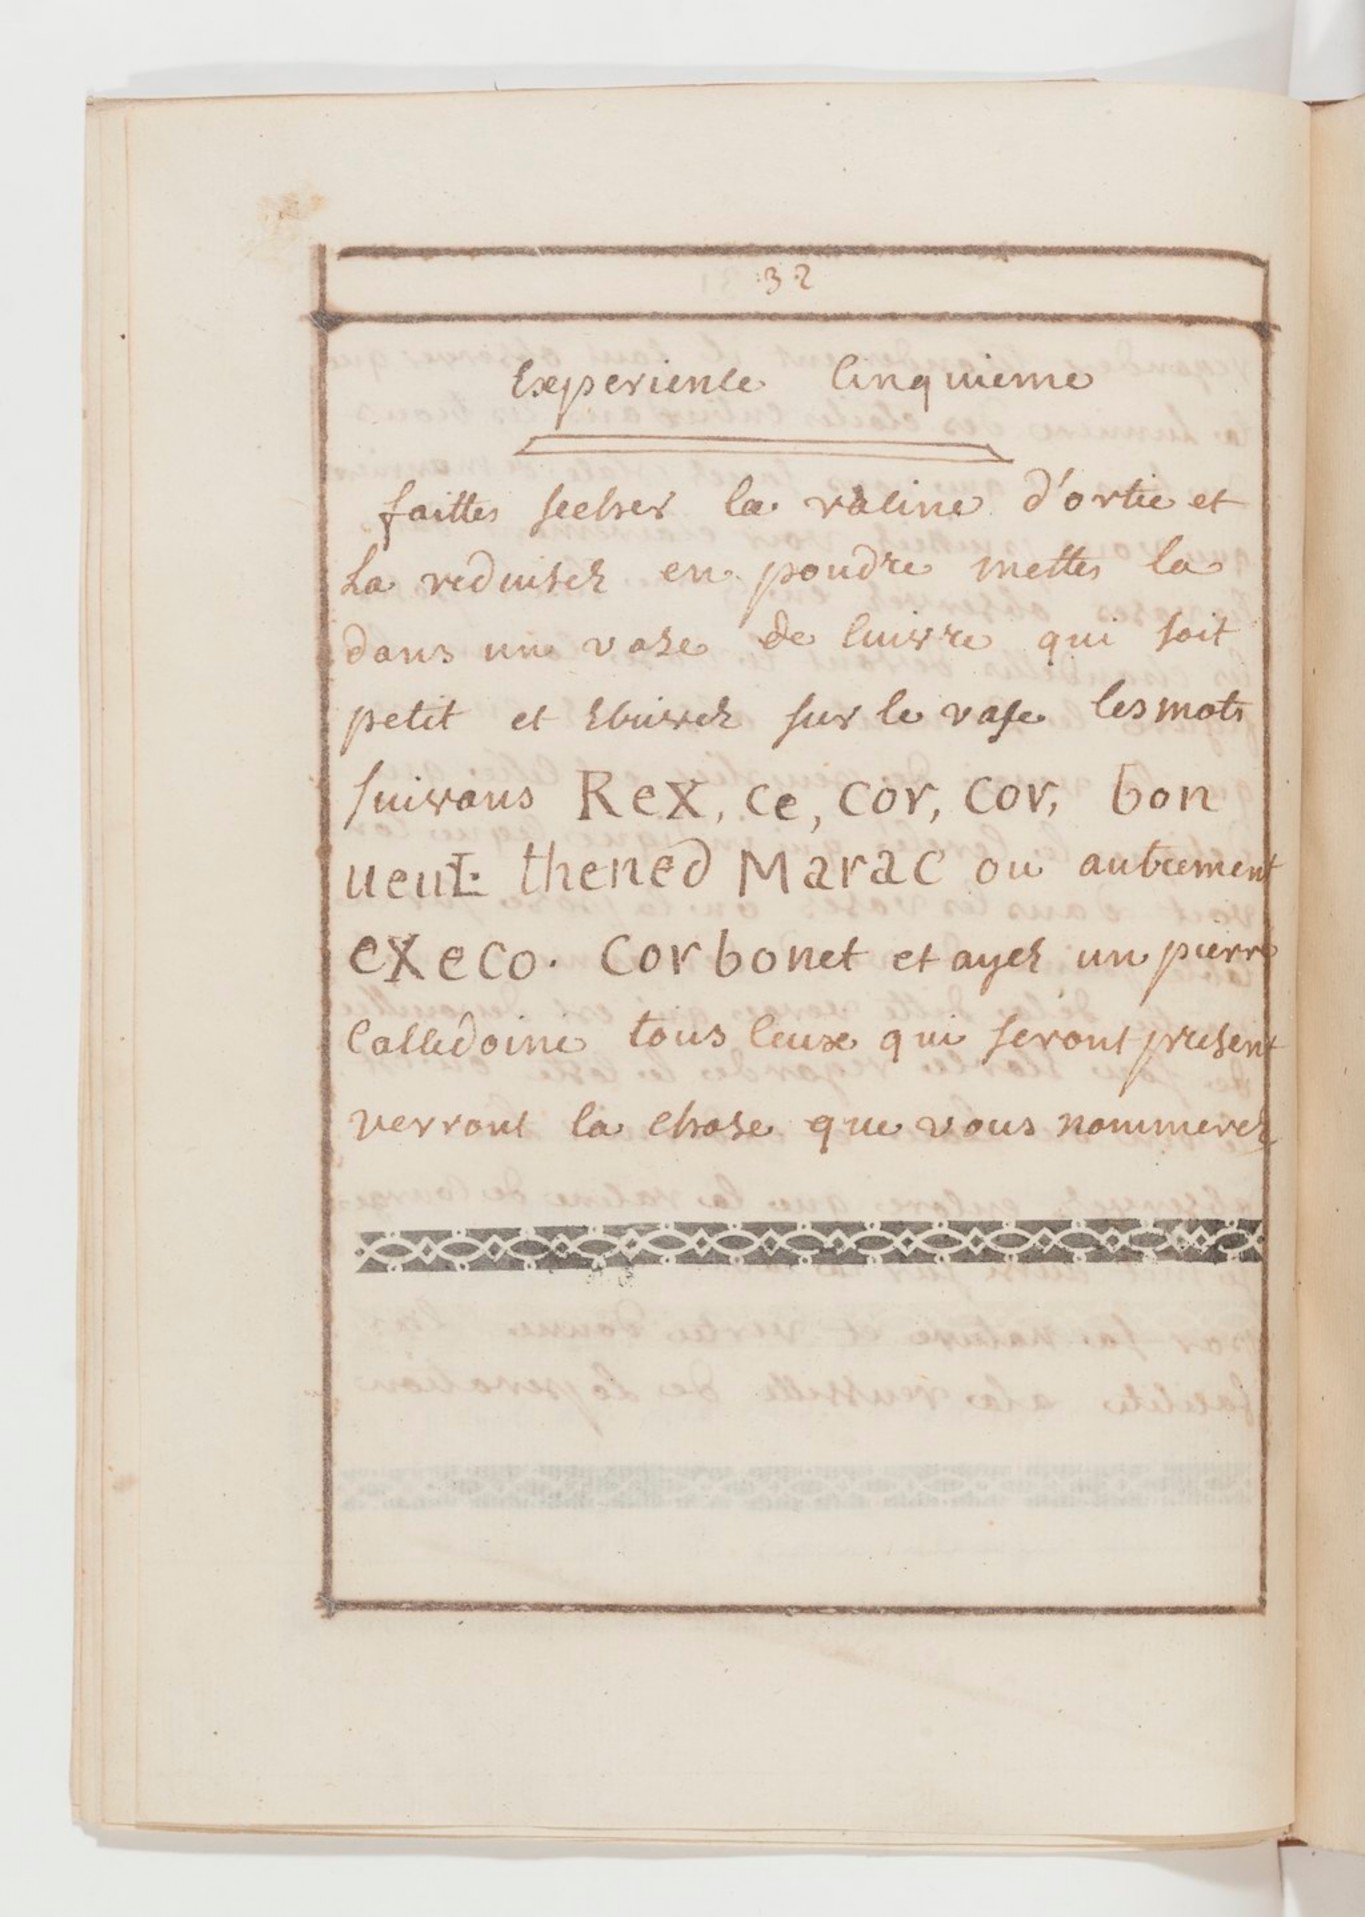 :3.2
Experience Cinquieme
faittes secher la racine d'ortie et
La reduisez en poudre mettes la
dans un vase de cuivre qui soit
petit et Ecrivez sur le vase les mots
suivans Rex, ce, cor, cor, bon
uent. thened Marac ou autrement
execo. Corbonet et ayez un pierre
Calledoine tous ceux qui seront present
verront la chose que vous nommerez